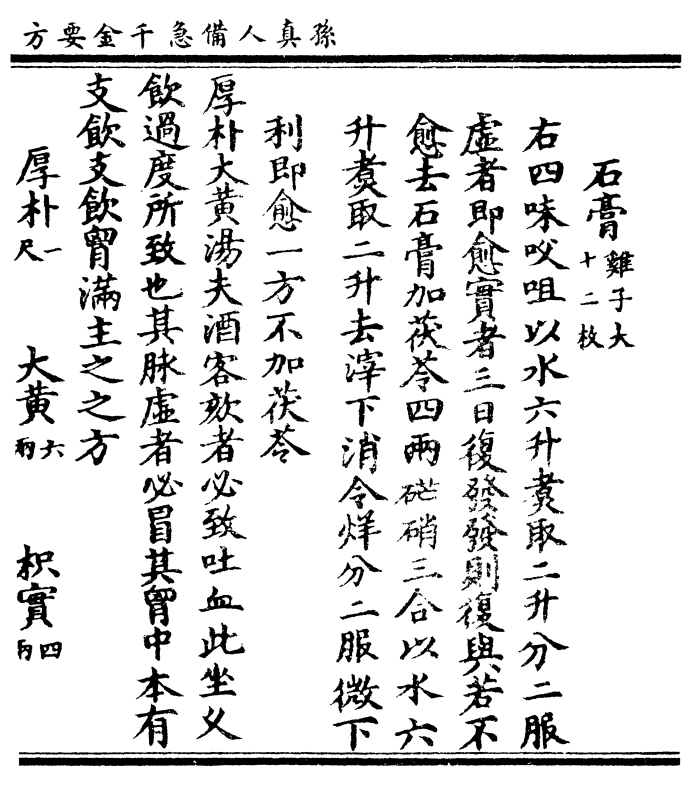 孫真人備急千金要方
石膏雞子大十二枚
右四味㕮咀以水六升煑取二升分二服
虛者即愈實者三日復發發則復與若不
愈去石膏加茯苓四兩硭硝三合以水六
升煑取二升去滓下消令烊分二服微下
利即愈一方不加茯苓
厚朴大黃湯夫酒客欬者必致吐血此坐乆
飲過度所致也其脉虛者必冒其胷中本有
支飲支飲胷滿主之之方
厚朴一尺 大黃六兩 枳實四兩